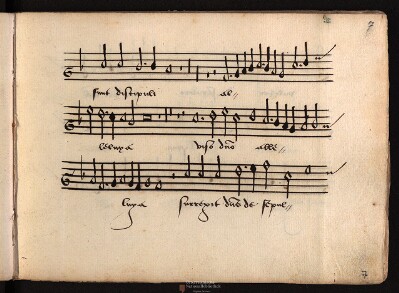 7
sunt discipuli al-
leluya viso dno alle-
luya surrexit dns de sepul-